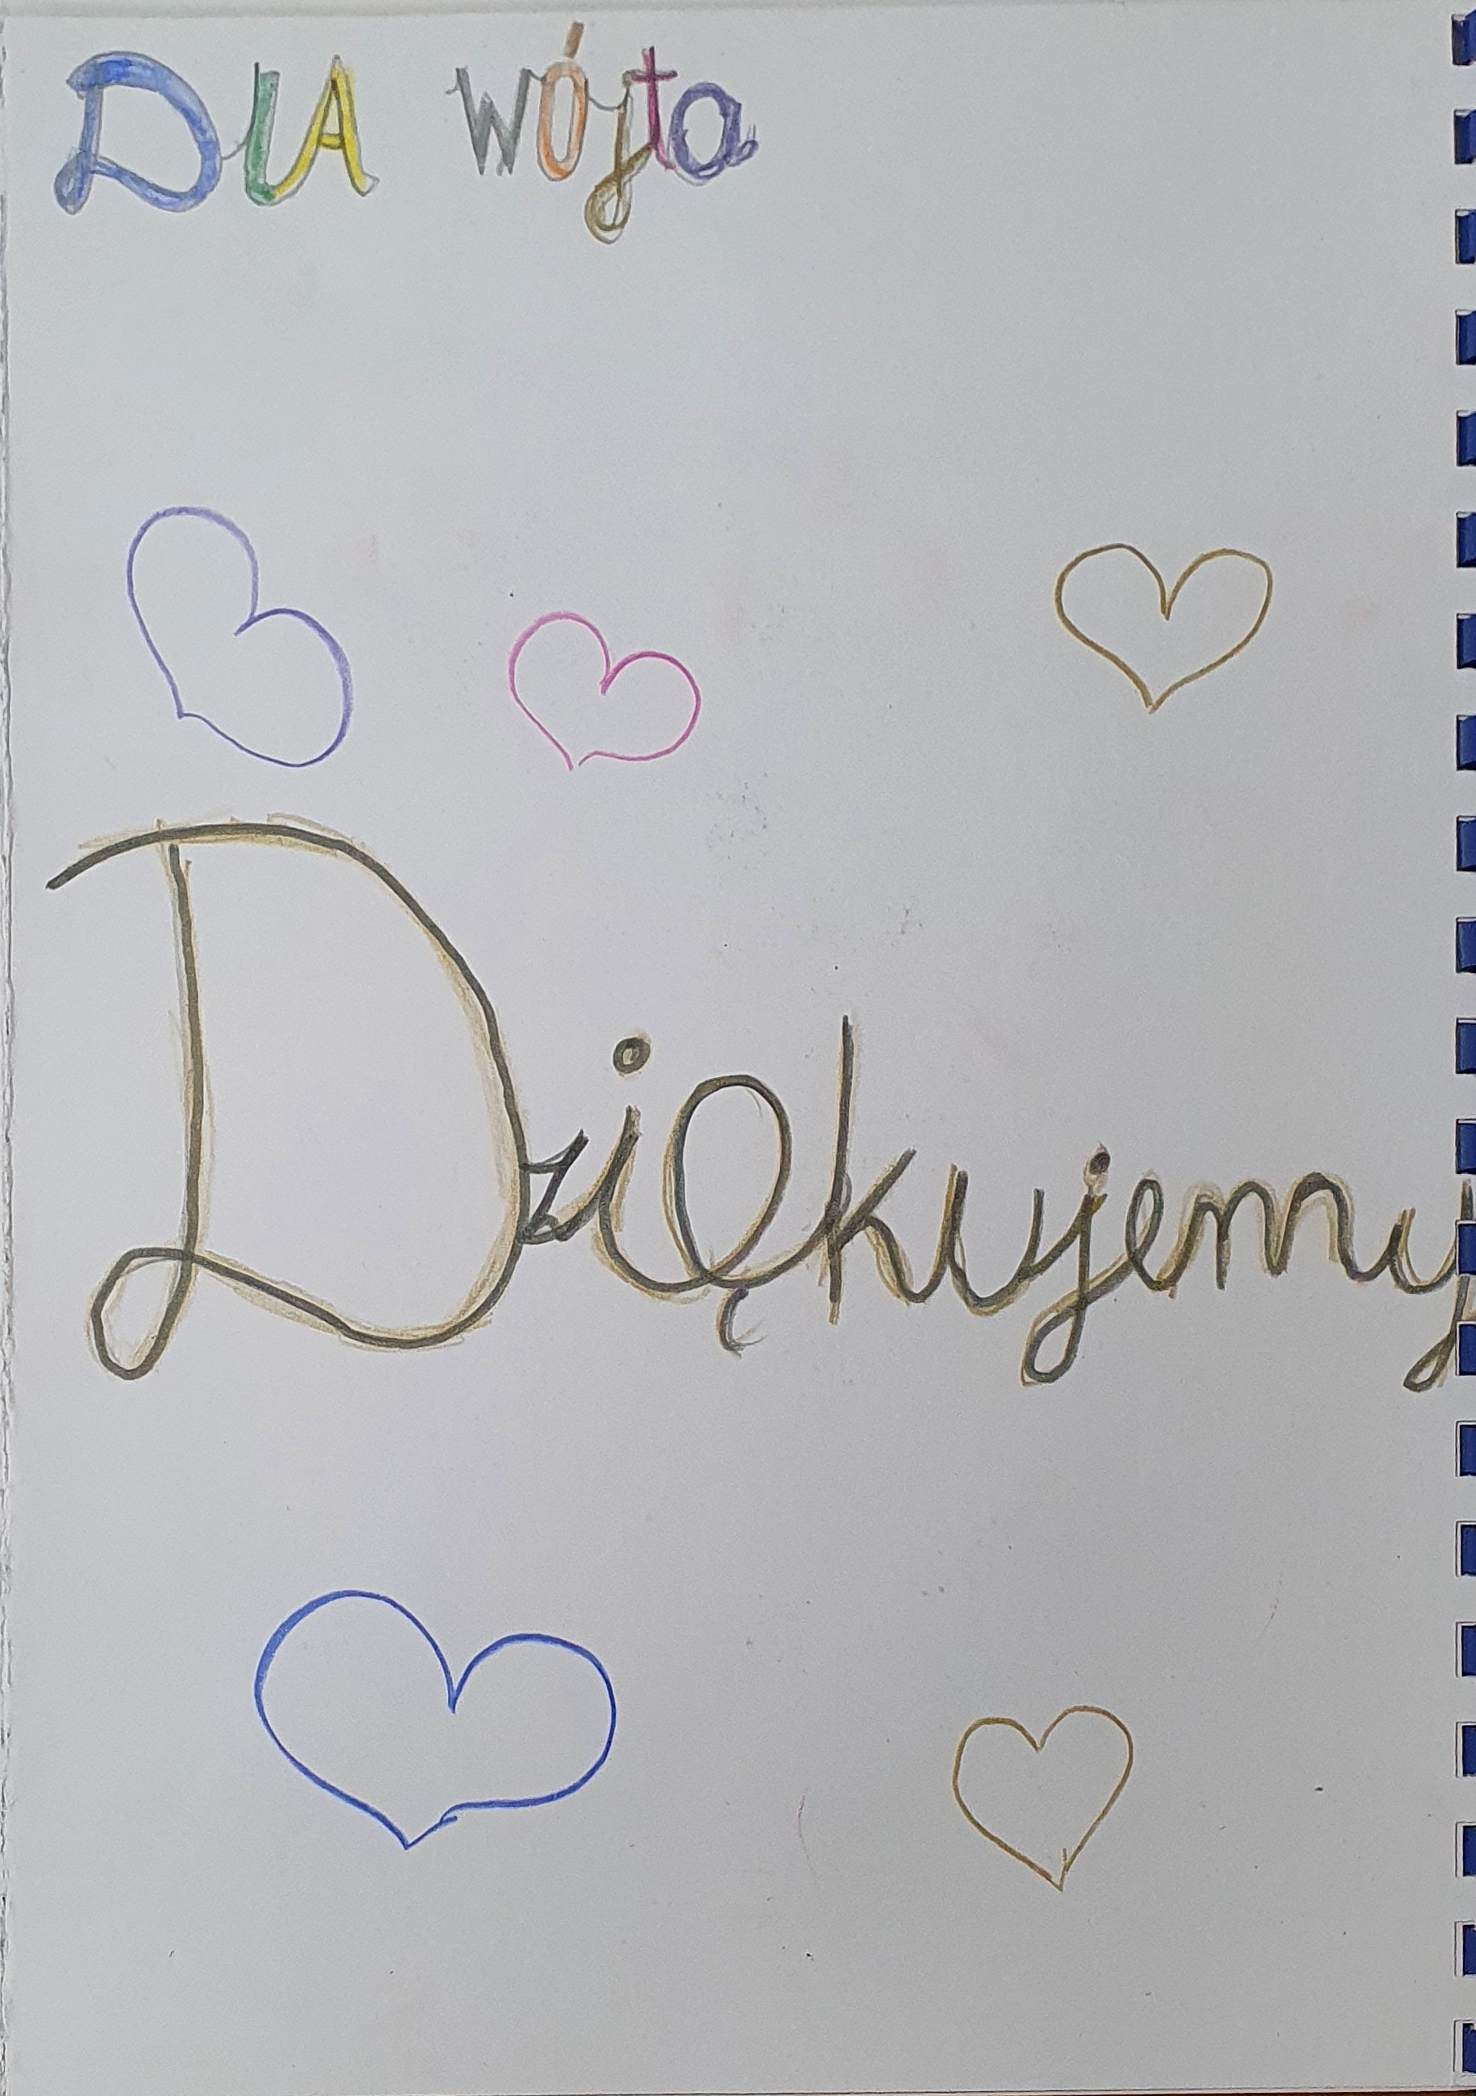 DlA wójta
Dziękujemy